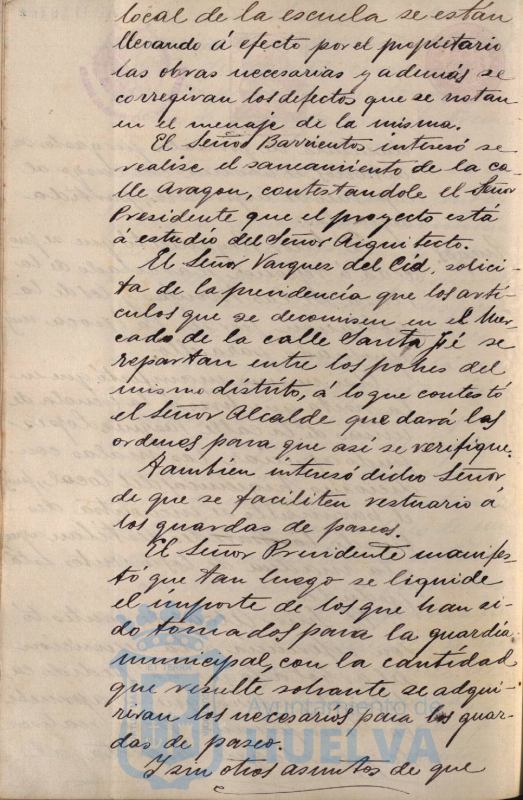 local de la escuela se están
llevando á efecto por el propietario
las obras necesarias y además se
corregiran los defectos que se notan
en el menaje de la misma.
El Señor Barrientos interesó se
realise el saneamiento de la ca-
lle Aragon, contestandole el Señor
Presidente que el proyecto está
á estudio del Señor Arquitecto.
El Señor Vazquez del Cid, solici-
ta de la presidencia que los artí-
culos que se decomisen en el Mer-
cado de la calle Santa Fé se
repartan entre los pobres del
mismo distrito, á lo que contestó
el Señor Alcalde que dará las
ordenes para que así se verifique.
Tambien interesó dicho Señor
de que se faciliten vestuario á
los guardas de paseos.
El Señor Presidente manifes-
tó que tan luego se liquide
el importe de los que han si-
do tomados para la guardia
municipal, con la cantidad
que resulte sobrante se adqui-
riran los necesarios para los guar-
das de paseo.
Y sin otros asuntos de que
Ayuntamiento de
HUELVA